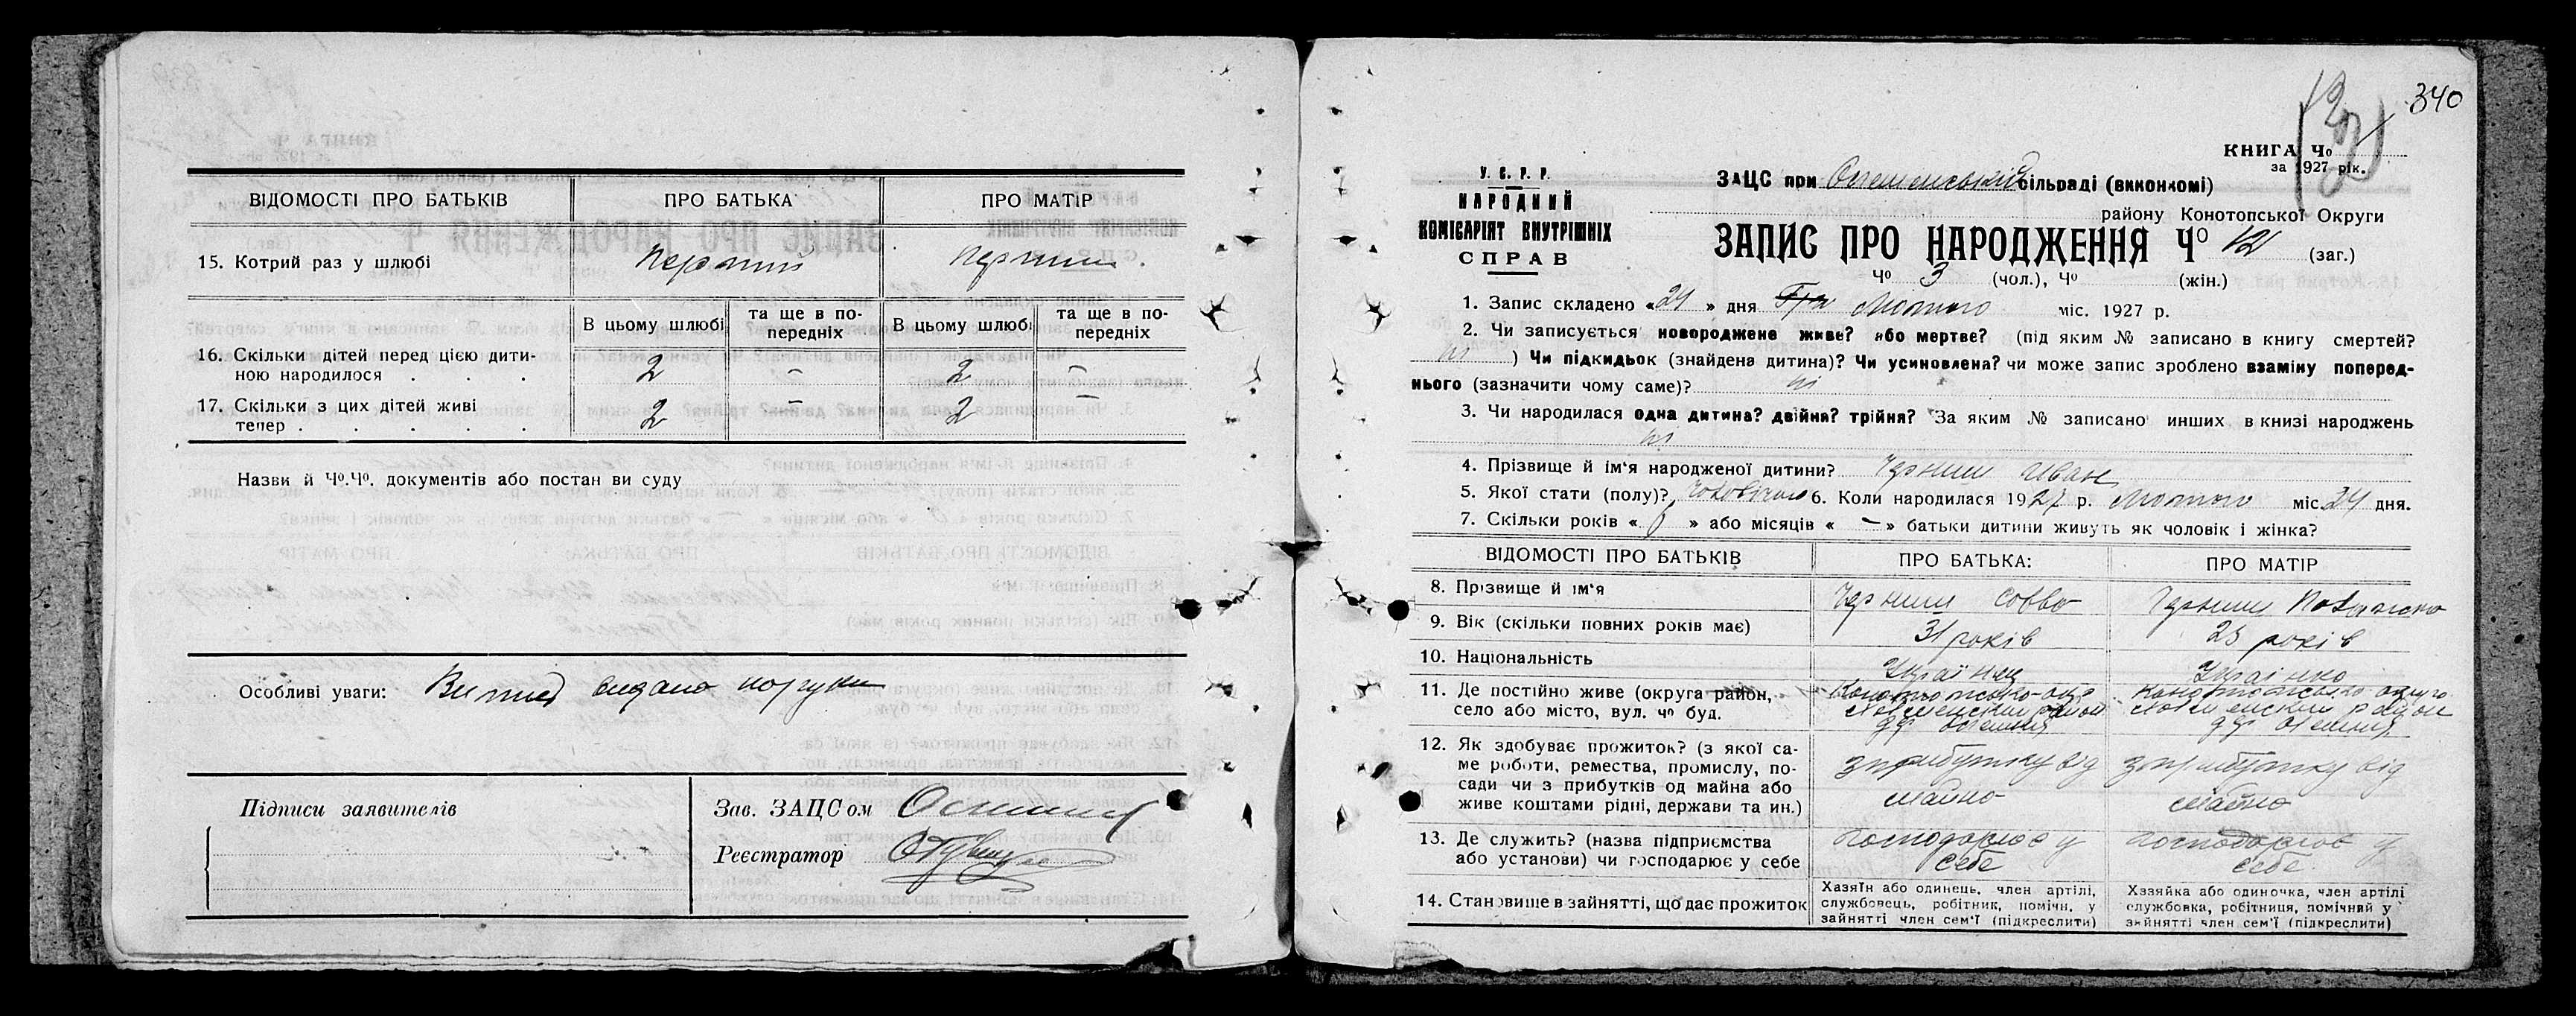 ВІДОМОСТІ ПРО БАТЬКІВ
ПРО БАТЬКА
ПРО МАТІР
15. Котрий раз у шлюбі
Перший
Перший
В цьому шлюбі
та ще в по-
передніх
В цьому шлюбі
та ще в по-
передніх
16. Скільки дітей перед цією дити-
ною народилося . . .
2 – 2 –
17. Скільки з цих дітей живі
тепер . . . . .
2 – 2 –
Назви й Чо.Чо. документів або постан ви суду
Особливі уваги: видано на руки
Підписи заявителів
Зав. ЗАЦСом
Реєстратор
340
КНИГА Чо
за 1927 рік.
У. С. Р. Р.
НАРОДНИЙ
КОМІСАРІЯТ ВНУТРІШНІХ
СПРАВ
ЗАЦС при сільраді (виконкомі)
району Конотопської Округи
ЗАПИС ПРО НАРОДЖЕННЯ Чо (заг.)
Чо 3 (чол.), Чо (жін.)
1. Запис складено «24» дня Лютого міс. 1927 р.
2. Чи записується новороджене живе? або мертве? (під яким № записано в книгу смертей?
ні ) Чи підкидьок (знайдена дитина)? Чи усиновлена? чи може запис зроблено взаміну поперед-
нього (зазначити чому саме)? ні
3. Чи народилася одна дитина? двійня? трійня? За яким № записано инших в книзі народжень
ні
4. Прізвище й ім'я народженої дитини? Черниш Иван
5. Якої стати (полу)? 6. Коли народилася 1927 р. Лютого міс. 24 дня.
7. Скільки років « 6 » або місяців « – » батьки дитини живуть як чоловік і жінка?
ВІДОМОСТІ ПРО БАТЬКІВ
ПРО БАТЬКА:
ПРО МАТІР
8. Прізвище й ім'я
Черниш Савва
Черниш
9. Вік (скільки повних років має)
31 років
25 років
10. Національність
Українец
Українка
11. Де постійно живе (округа район,
село або місто, вул. чо буд.
Конотопська округа
район
Конотопська округа
район
12. Як здобуває прожиток? (з якої са-
ме роботи, ремества, промислу, по-
сади чи з прибутків од майна або
живе коштами рідні, держави та ин.)
з прибутку від
майна
з прибутку від
майна
13. Де служить? (назва підприємства
або установи) чи господарює у себе
господарює у
себе
господарює у
себе
14. Становище в зайнятті, що дає прожиток
Хазяїн або одинець, член артілі,
службовець, робітник, помічн. у
зайнятті член сем'ї (підкреслити)
Хазяйка або одиночка, член артілі
службовка, робітниця, помічний у
зайнятті член сем'ї (підкреслити)